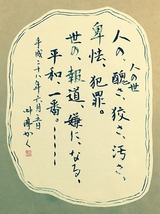 人の世
人の、醜さ、狡さ、汚さ、
卑怯、犯罪。
世の、報道、嫌に、なる、
平和、一番。-----
平成二十八年六月五日